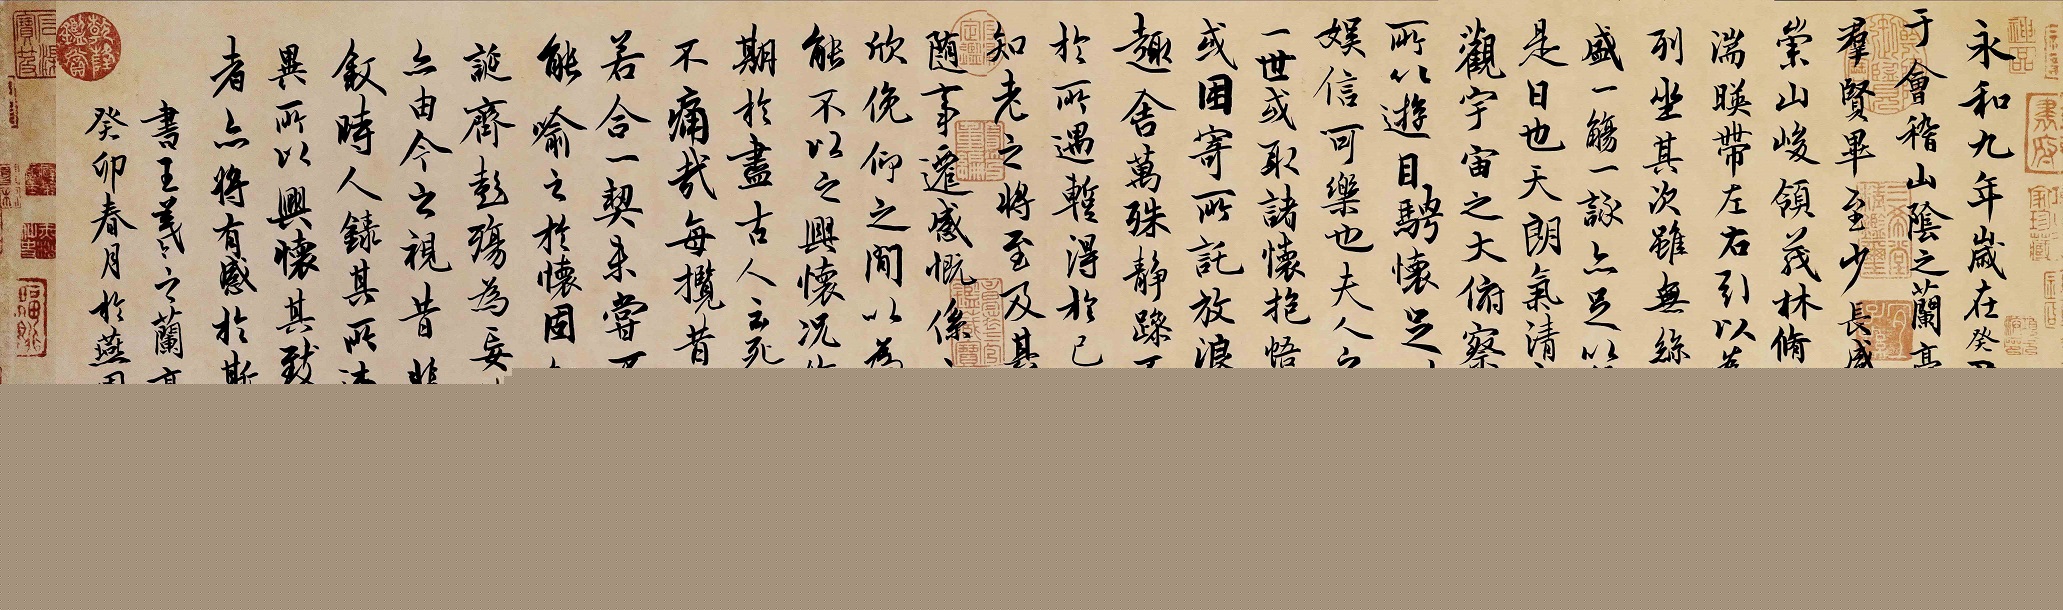 永和九年歲在癸
于會稽山陰之蘭亭
羣賢畢至少長咸
崇山峻領茂林脩
湍暎帶左右引以
列坐其次雖無絲
盛一觴一詠亦足以
是日也天朗氣清
觀宇宙之大俯察
所以遊目騁懷足
娛信可樂也夫人之
一世或取諸懷抱悟
或因寄所託放浪
趣舍萬殊静躁
於所遇暫得於己
知老之將至及其
隨事遷感慨係
欣俛仰之間以為
能不以之興懷況
期於盡古人云死
不痛哉每攬昔
若合一契未嘗
能喻之於懷固
誕齊彭殤為妄
亦由今之視昔
敘時人錄其所
異所以興懷其致
者亦將有感於斯
書王羲之蘭亭
癸卯春月於燕